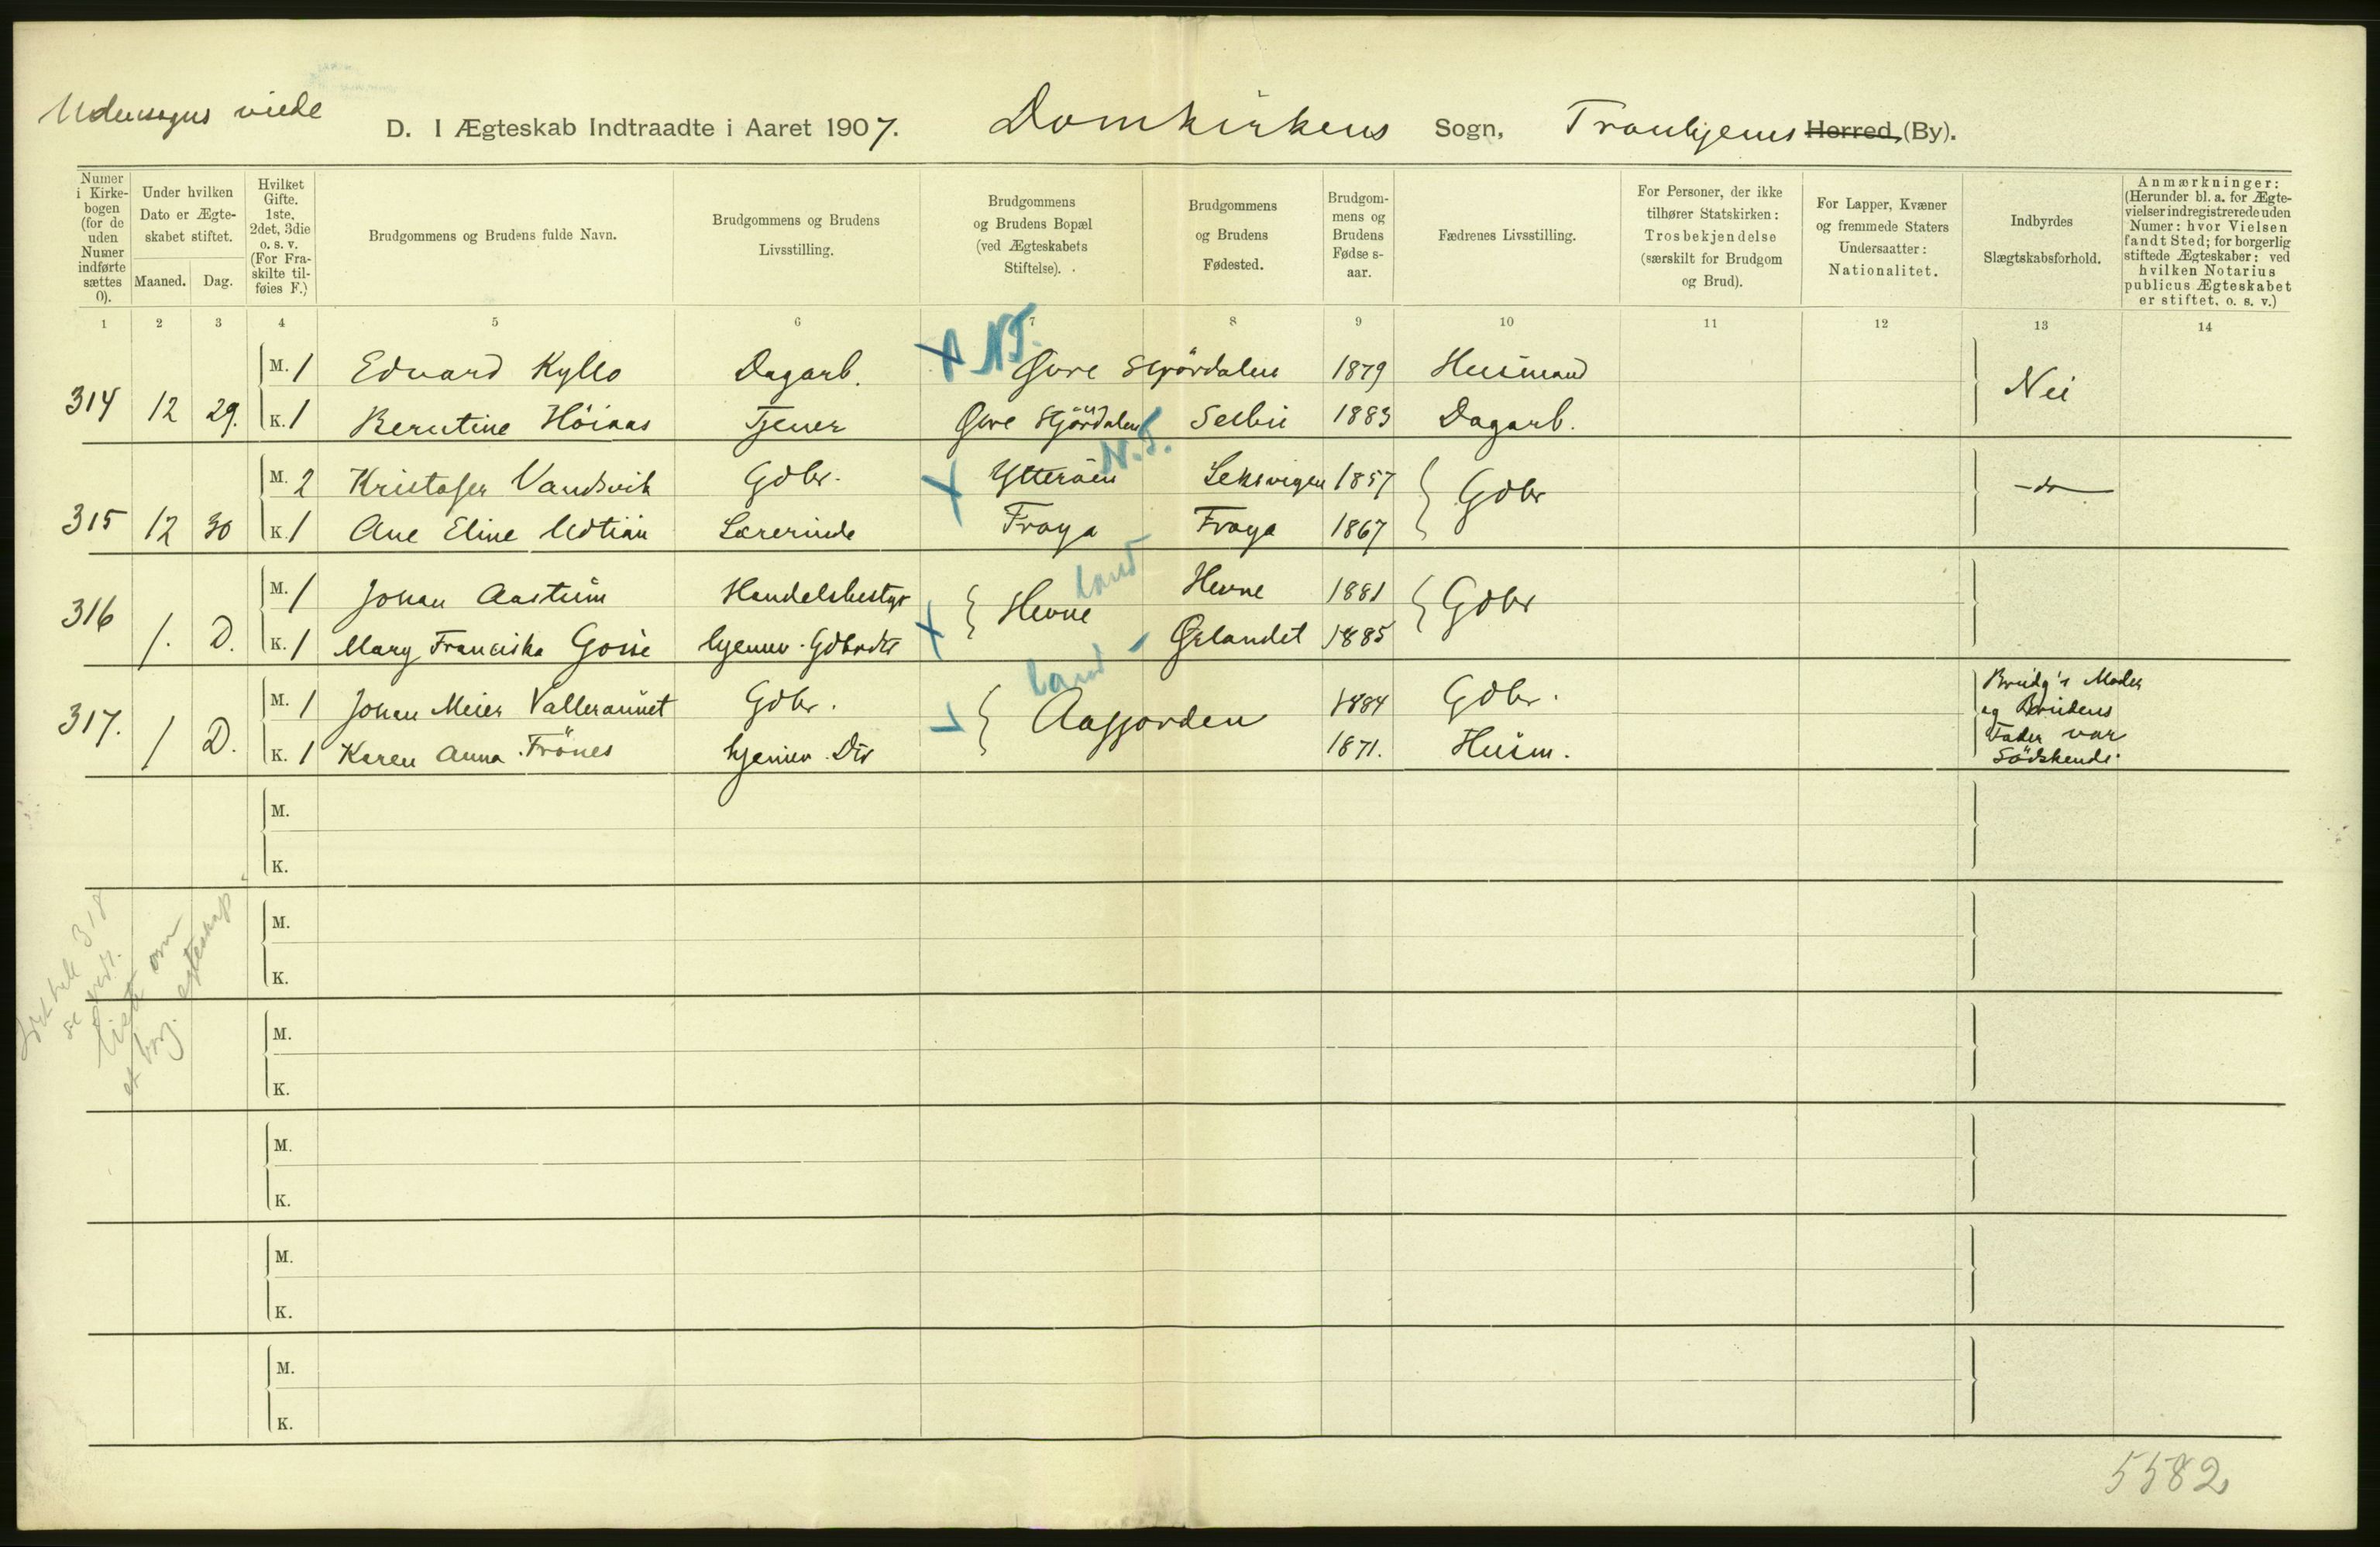 Udensogns viede
D. I Ægteskab Indtraadte i Aaret 1907. Domkirkens Sogn, Tronhjems Herred, (By).
Numer i Kirke-bogen (for de uden Numer indførte sættes 0).
Under hvilken Dato er Ægte-skabet stiftet.
Maaned. Dag.
Hvilket Gifte. 1ste, 2det, 3die o. s. v. (For Fra-skilte til-føies F.)
Brudgommens og Brudens fulde Navn.
Brudgommens og Brudens Livsstilling.
Brudgommens og Brudens Bopæl (ved Ægteskabets Stiftelse).
Brudgommens og Brudens Fødested.
Brudgom-mens og Brudens Fødse s-aar.
Fædrenes Livsstilling.
For Personer, der ikke tilhører Statskirken: Trosbekjendelse (særskilt for Brudgom og Brud).
For Lapper, Kvæner og fremmede Staters Undersaatter: Nationalitet.
Indbyrdes Slægtskabsforhold.
Anmærkninger: (Herunder bl. a. for Ægte-vielser indregistrerede uden Numer: hvor Vielsen fandt Sted; for borgerlig stiftede Ægteskaber: ved hvilken Notarius publicus Ægteskabet er stiftet, o. s. v.)
1 2 3 4 5 6 7 8 9 10 11 12 13 14
N.T.
M. 1 Edvard Kyllo Dagarb. Øvre Stjørdalen 1879 Husmand
314 12 29. K. 1 Berntine Höiaas Tjener Øvre Stjördalen Selbu 1883 Dagarb. Nei
N.T.
M. 2 Kristofer Vandsvik Gdbr. Ytteröen Leksvigen 1857 Gdbr
315 12 30 K. 1 Ane Eline Udtian Lærerinde Froya Froya 1867 - do -
Land
M. 1 Johan Aastum Handelsbestyr Hevne Hevne 1881 Gdbr
316 1. D. K. 1 Mary Franciska Hjemv. Gdbrdtr Ørlandet 1885
Land
M. 1 Johan Meier Valleraunet Gdbr. Aafjorden 1884 Gdbr.
317. 1 D. K. 1 Karen Anna Frönes hjemv. Dtr 1871. Husm.
Brudg's Moder
og Brudens
Fader var
Södskende.
M.
K.
M.
K.
318
se
liste om
borj. egteskap
M.
K.
M.
K.
M.
K.
M.
K.
5582